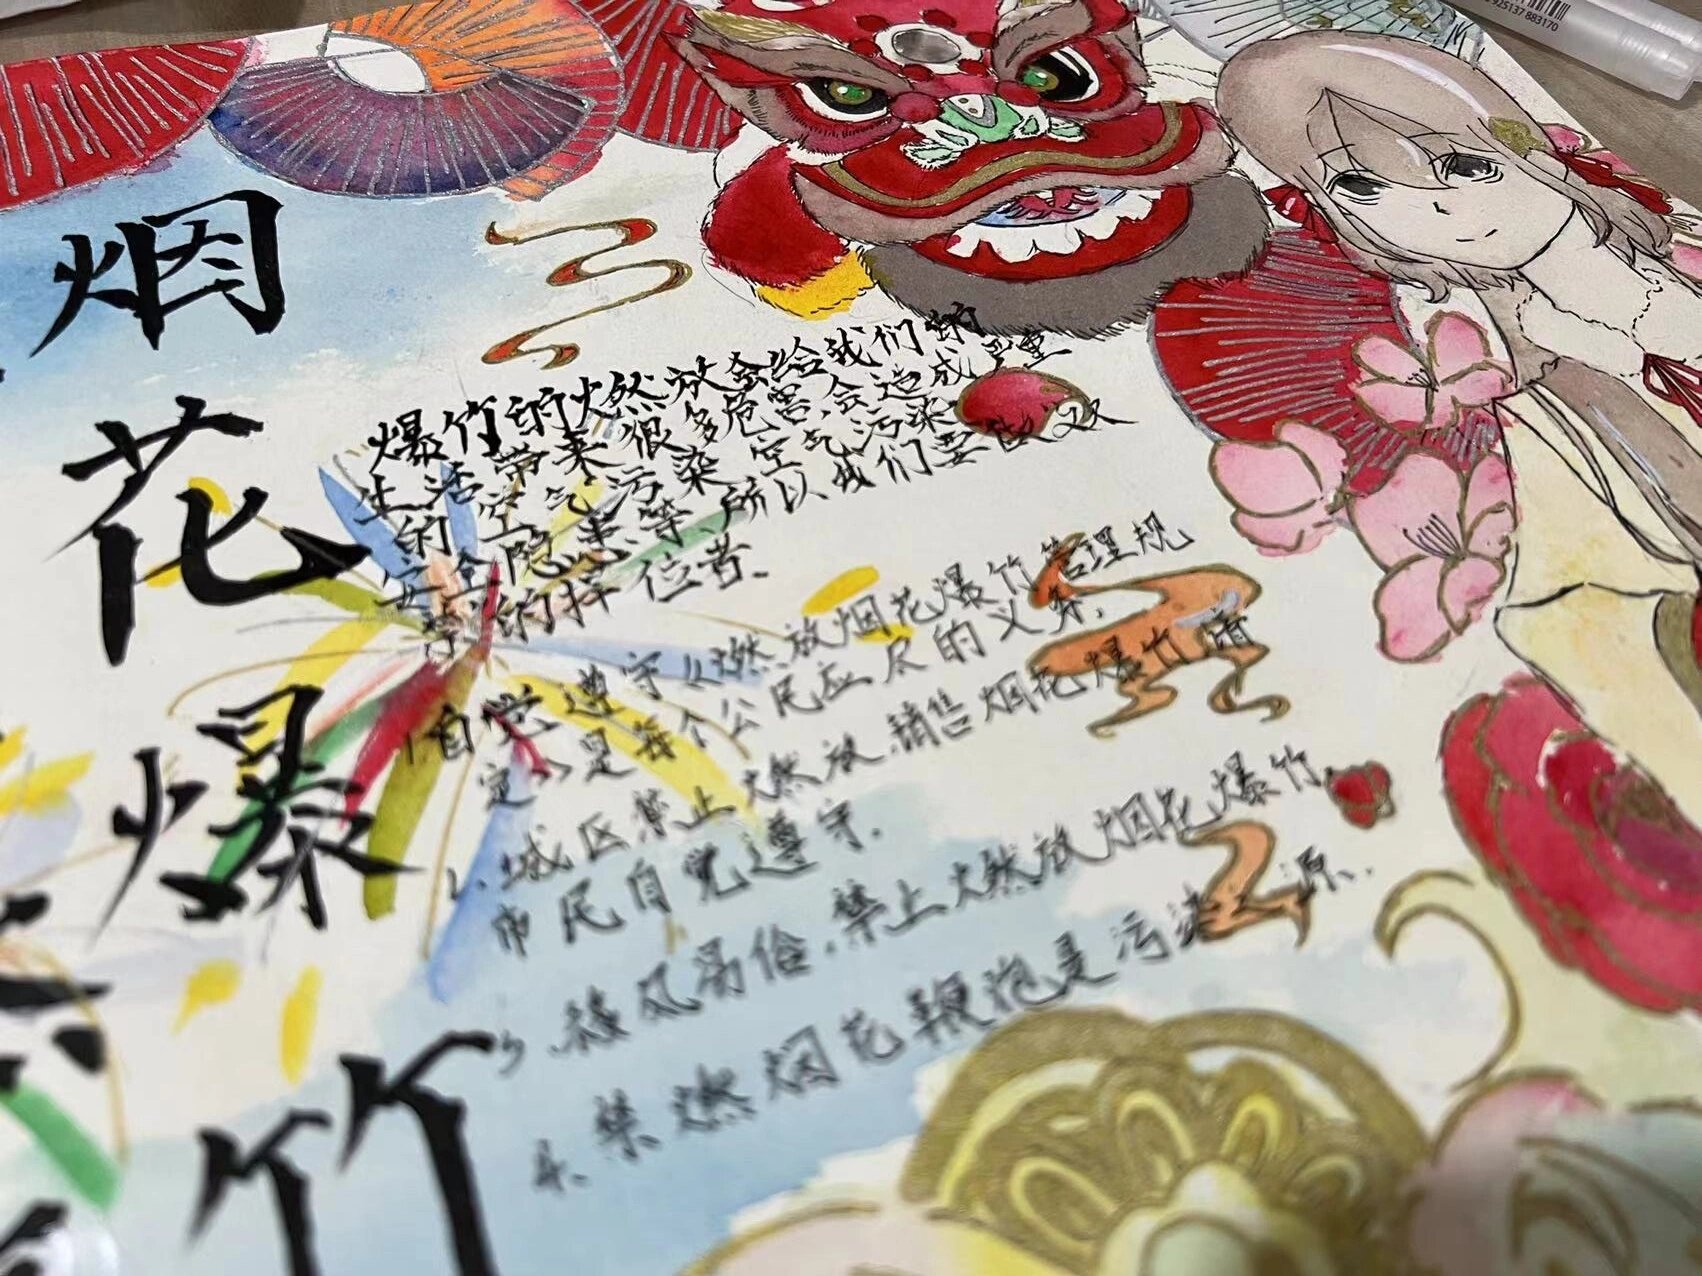 烟花爆竹
爆竹的燃放会给我们的
生活带来很多危害,会造成严重
的空气污染空气污染
安全隐患等、所以我们要做
的捍位者、
1自觉遵守《燃放烟花爆竹管理规
定》是每个公民应尽的义务,
2、城区禁止燃放、销售烟花爆竹
市民自觉遵守.
3、移风易俗,禁止燃放烟花爆竹
禁燃烟花鞭炮是污染源.
925137 883170